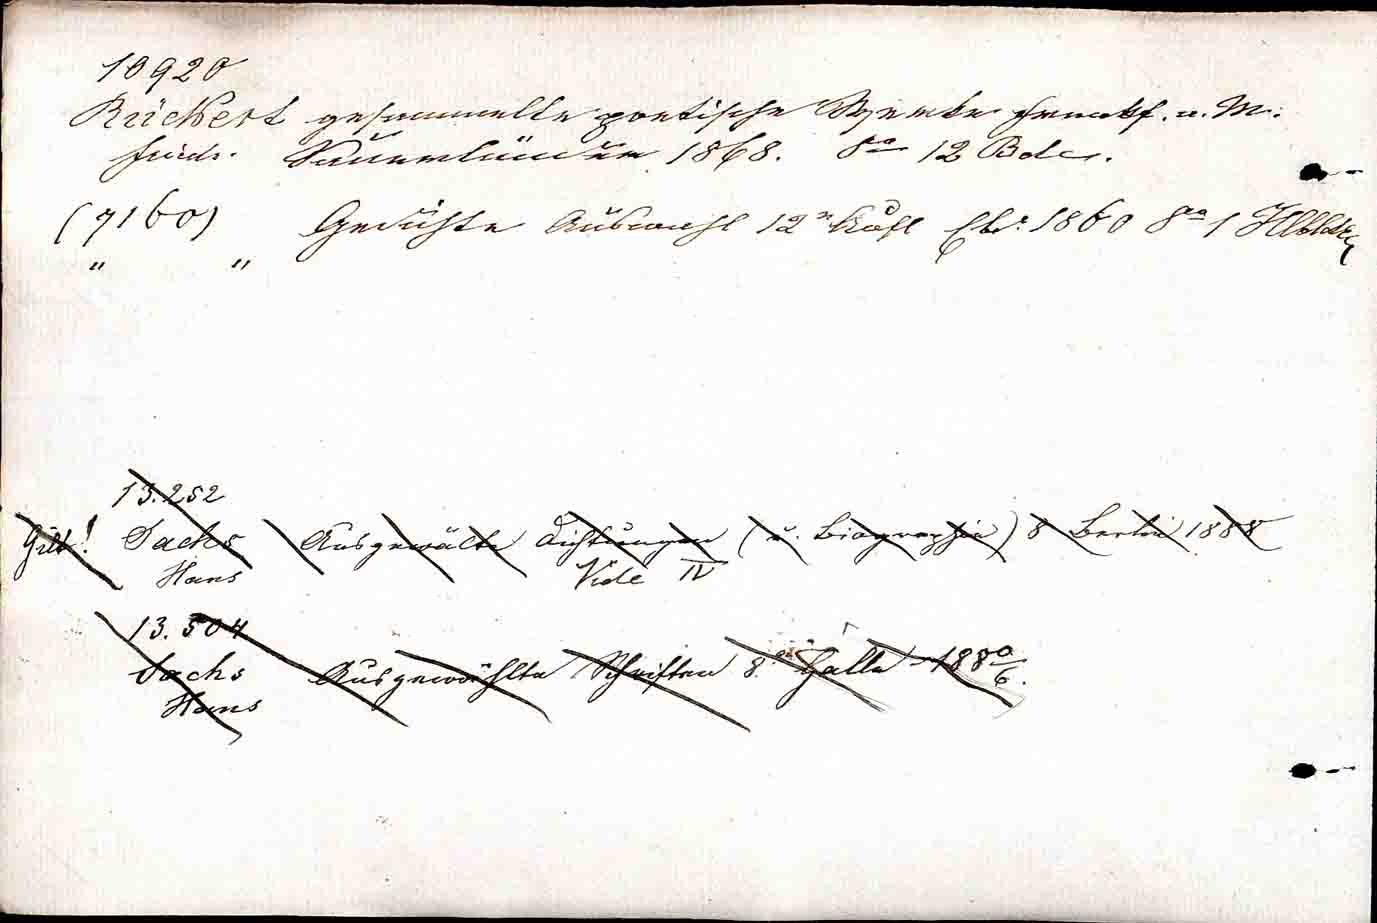 10920
Rückert gesammelte poetische Werke Frankf. a. M:
Friedr. Sauerländer 1868. 8o 12 Bde.
(7160) Gedichte Auswahl 12e Aufl Ebd. 1860 8o 1 Hlbldr
" "
13.252
Gilt! Sachs Ausgewälte Dichtungen (u. Biographie) 8 Berlin 1888
Hans Vide IV
13.504
Sachs Ausgewählte Schriften 8.o Halle 1880/6.
Hans